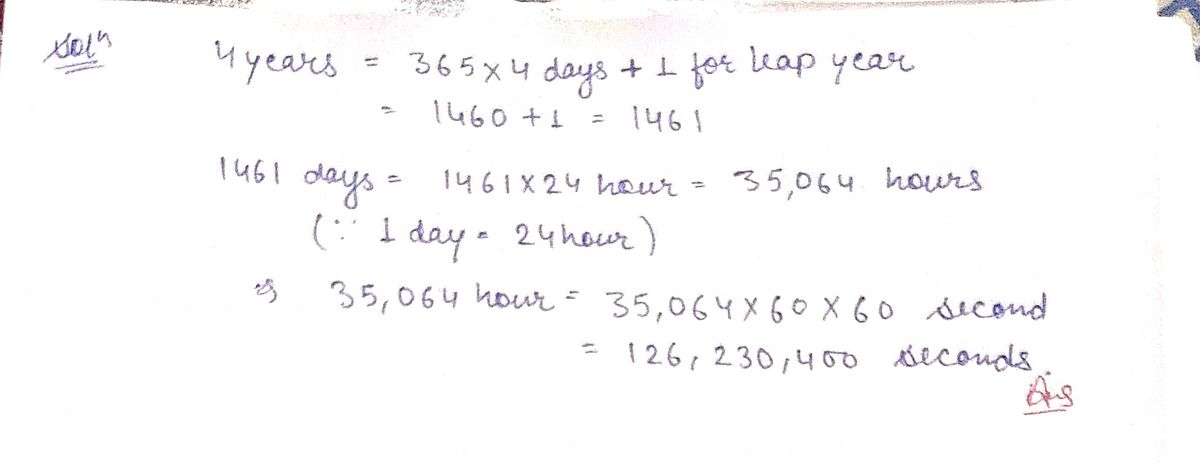 Solⁿ
4 years = 365 x 4 days + 1 for leap year
= 1460 + 1 = 1461
1461 days = 1461 x 24 hour = 35,064 hours
(∵ 1 day = 24 hour)
⇒ 35,064 hour = 35,064 x 60 x 60 second
= 126,230,400 seconds.
Ans